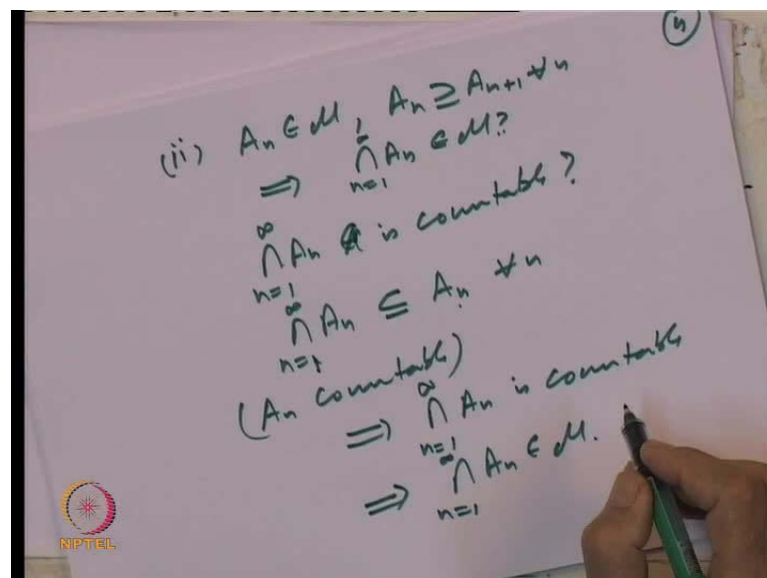 (ii) Aₙ ∈ M, Aₙ ⊇ Aₙ₊₁ ∀ n
⇒ ∞⋂n=1 Aₙ ∈ M?
∞⋂n=1 Aₙ is countable?
∞⋂n=1 Aₙ ⊆ Aₙ ∀ n
(Aₙ countable)
⇒ ∞⋂n=1 Aₙ is countable
⇒ ∞⋂n=1 Aₙ ∈ M.
NPTEL